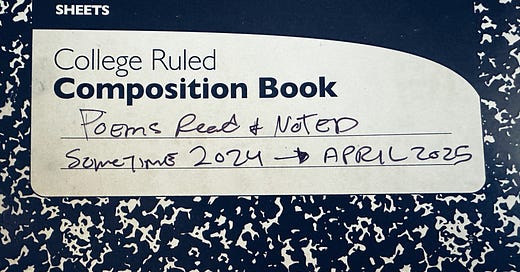 SHEETS
College Ruled
Composition Book
Poems Read & Noted
Sometime 2024 → April 2025